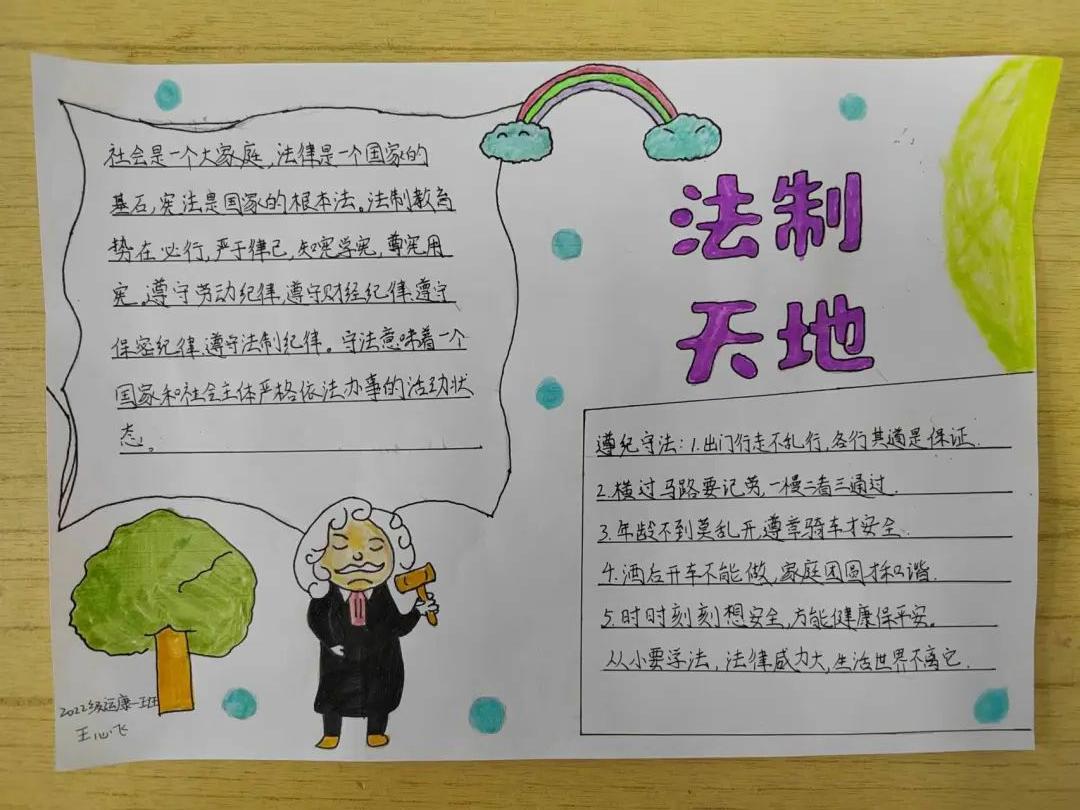 社会是一个大家庭，法律是一个国家的
基石，宪法是国家的根本法。法制教育
势在必行，严于律己，知宪学宪，尊宪用
宪。遵守劳动纪律，遵守财经纪律、遵守
保密纪律、遵守法制纪律。守法意味着一个
国家和社会主体严格依法办事的活动状
态。
法制
天地
遵纪守法：1.出门行走不乱行，各行其道是保证.
2.横过马路要记劳，一慢二看三通过.
3.年龄不到莫乱开，遵章骑车才安全.
4.酒后开车不能做，家庭团圆才和谐.
5.时时刻刻想安全，方能健康保平安。
从小要学法，法律威力大，生活世界不离它.
2022级运康一班
王心飞